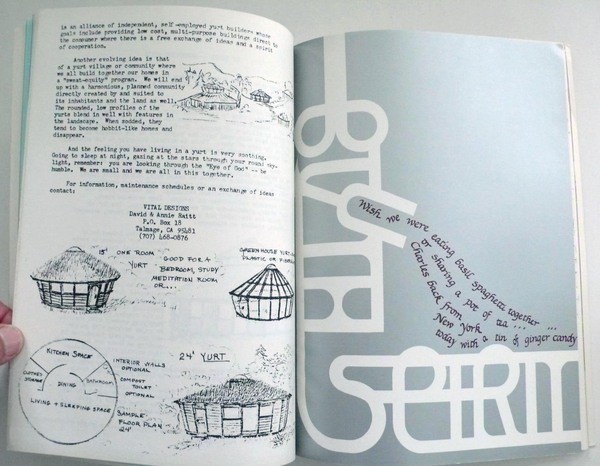 is an alliance of independent, self-employed yurt builders whose
goals include providing low cost, multi-purpose buildings direct to
the consumer where there is a free exchange of ideas and a spirit
of cooperation.
Another evolving idea is that
of a yurt village or community where
we all build together our homes in
a "sweat-equity" program. We will end
up with a harmonious, planned community
directly created by and suited to
its inhabitants and the land as well.
The rounded, low profiles of the
yurts blend in well with features in
the landscape. When sodded, they
tend to become hobbit-like homes and
disappear.
And the feeling you have living in a yurt is very soothing.
Going to sleep at night, gazing at the stars through your round sky-
light, remember: you are looking through the "Eye of God" -- be
humble. We are small and we are all in this together.
For information, maintenance schedules or an exchange of ideas
contact:
VITAL DESIGNS
David & Annie Raitt
P.O. Box 18
Talmage, CA 95481
(707) 468-0876
15' ONE ROOM
YURT
GOOD FOR A
BEDROOM, STUDY
MEDITATION ROOM
OR...
GREENHOUSE YURT
PLASTIC OR
KITCHEN SPACE
CLOTHES
STORAGE
DINING
BATHROOM
LIVING & SLEEPING SPACE
INTERIOR WALLS
OPTIONAL
COMPOST
TOILET
OPTIONAL
SAMPLE
FLOOR PLAN
24'
24' YURT
Wish we were eating basil spaghetti together
or sharing a pot of tea ... ...
Charles back from
New York
today with a tin of ginger candy
SPIRIT